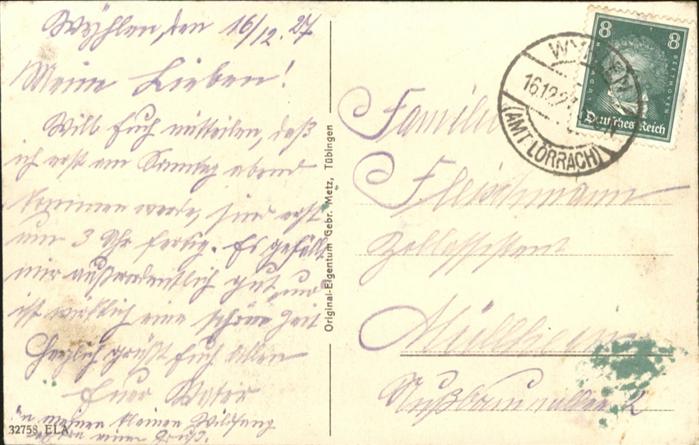 Wyhlen, den 16/12. 27
Meine Lieben!
Will Euch mitteilen, daß
ich erst am Samstag abend
kommen werde, sind erst
um 3 Uhr fertig. Es gefällt
mir außerordentlich gut und
ist wirklich eine schöne Zeit
Herzlich grüßt Euch allen
Euer Vater
meinen kleinen
einen Gruß.
32758 ELA
Original-Eigentum Gebr. Metz, Tübingen
WYHLEN
16.12.27
(AMT LÖRRACH)
8 8
Deutsches Reich
Familie
Fleischmann
Zollassistent
Müllheim
Nußbaumallee 2